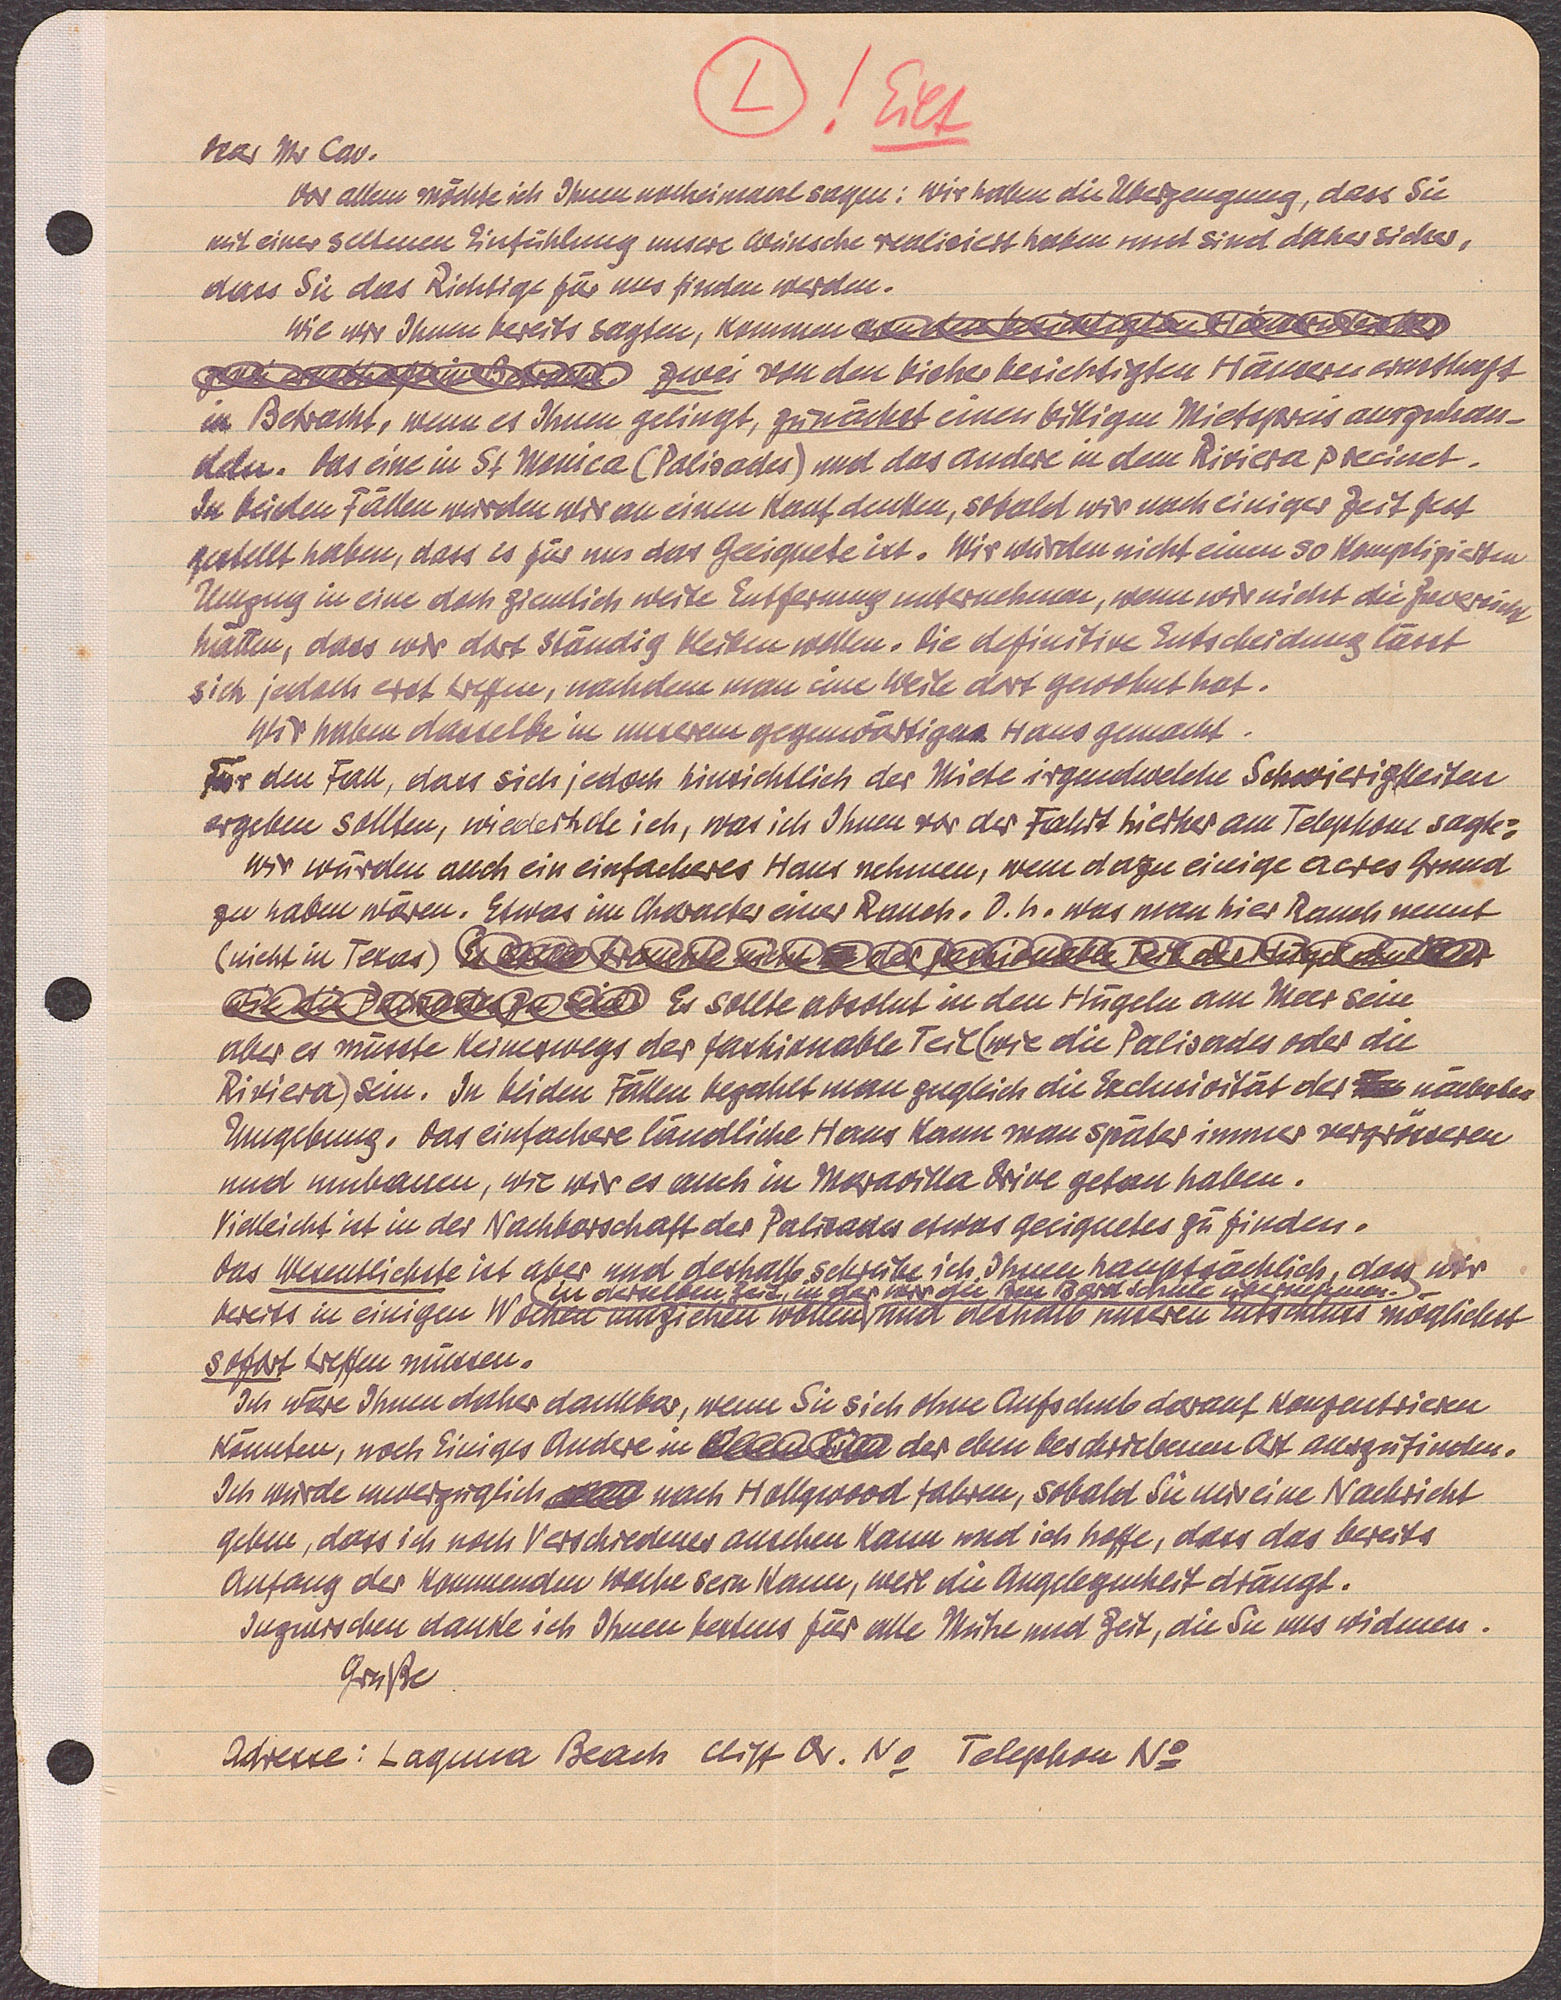 L ! Eilt
Dear Mr Cav.
Vor allem möchte ich Ihnen nocheinmal sagen: wir haben die Überzeugung, dass Sie
mit einer seltenen Einfühlung unsere Wünsche realisiert haben und sind daher sicher,
dass Sie das Richtige für uns finden werden.
Wie wir Ihnen bereits sagten, kommen von den besichtigten Häusern
zwei ernsthaft in Betracht zwei von den bisher besichtigten Häusern ernsthaft
in Betracht, wenn es Ihnen gelingt, zunächst einen billigen Mietspreis auszuhan-
deln. Das eine in St Monica (Palisades) und das andere in dem Riviera precinct.
In beiden Fällen würden wir an einen Kauf denken, sobald wir nach einiger Zeit fest
gestellt haben, dass es für uns das Geeignete ist. Wir würden nicht einen so komplizierten
Umzug in eine doch ziemlich weite Entfernung unternehmen, wenn wir nicht die Zuversicht
hätten, dass wir dort ständig bleiben wollen. Die definitive Entscheidung lässt
sich jedoch erst treffen, nachdem man eine Weile dort gewohnt hat.
Wir haben dasselbe in unserem gegenwärtigen Haus gemacht.
Für den Fall, dass sich jedoch hinsichtlich der Miete irgendwelche Schwierigkeiten
ergeben sollten, wiederhole ich, was ich Ihnen vor der Fahrt hierher am Telephon sagte:
Wir würden auch ein einfacheres Haus nehmen, wenn dazu einige acres Grund
zu haben wären. Etwas im Character einer Ranch. D.h. was man hier Ranch nennt
(nicht in Texas) Es brauchte nicht der fashionable Teil der Hügel
wie die Palisades zu sein Es sollte absolut in den Hügeln am Meer sein
aber es müsste keineswegs der fashionable Teil (wie die Palisades oder die
Riviera) sein. In beiden Fällen bezahlt man zugleich die Exclusivität der nächsten
Umgebung. Das einfachere ländliche Haus kann man später immer vergrösseren
und umbauen, wie wir es auch in Maravilla Drive getan haben.
Vielleicht ist in der Nachbarschaft der Palisades etwas geeignetes zu finden.
Das Wesentlichste ist aber und deshalb schreibe ich Ihnen hauptsächlich, dass wir
(in derselben Zeit, in der wir die Schule übernehmen.)
bereits in einigen Wochen umziehen wollen und deshalb unseren Entschluss möglichst
sofort treffen müssen.
Ich wäre Ihnen daher dankbar, wenn Sie sich ohne Aufschub darauf konzentrieren
könnten, noch Einiges Andere in der eben beschriebenen Art auszufinden.
Ich würde unverzüglich nach Hollywood fahren, sobald Sie mir eine Nachricht
geben, dass ich noch Verschiedenes ansehen kann und ich hoffe, dass das bereits
Anfang der kommenden Woche sein kann, weil die Angelegenheit drängt.
Inzwischen danke ich Ihnen bestens für alle Mühe und Zeit, die Sie uns widmen.
Grüße
Adresse: Laguna Beach Cliff Dr. No Telephon No